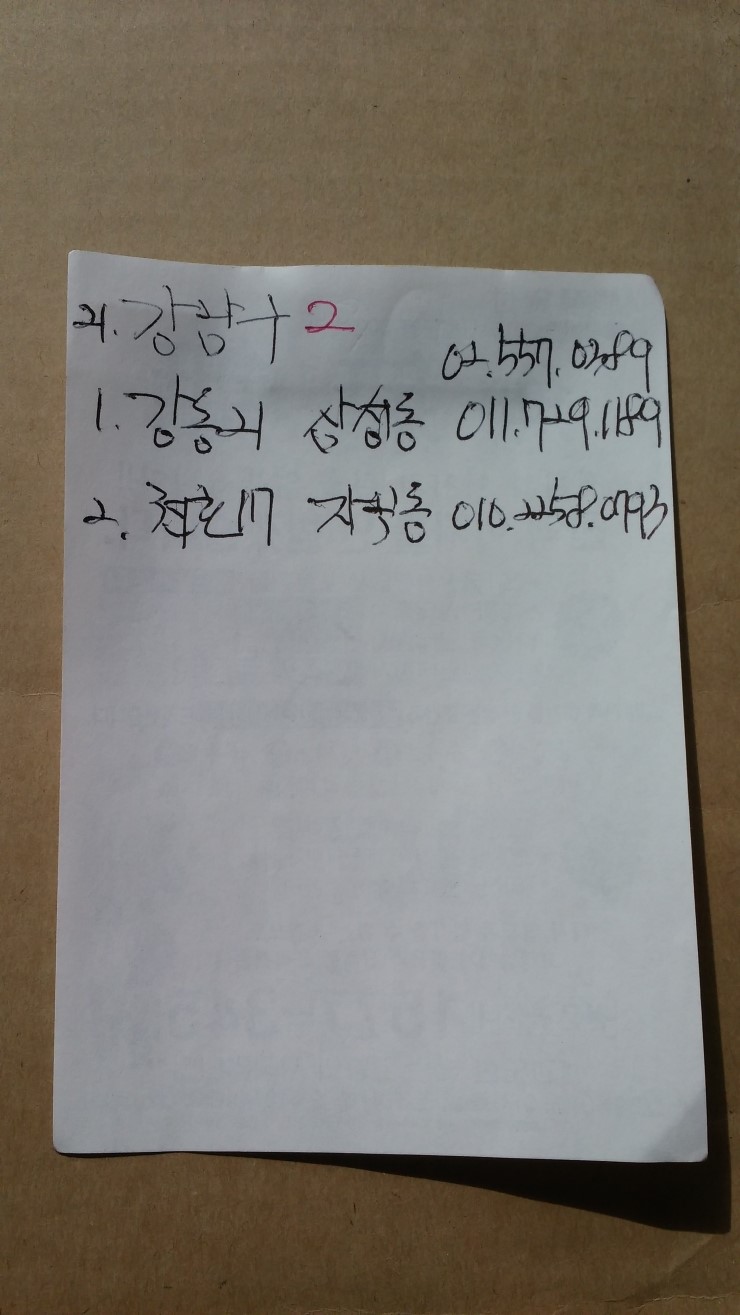 21. 강남구 2
02.557.0389
1. 강동리 삼성동 011.729.1189
2. 최호기 자곡동 010.2258.0793